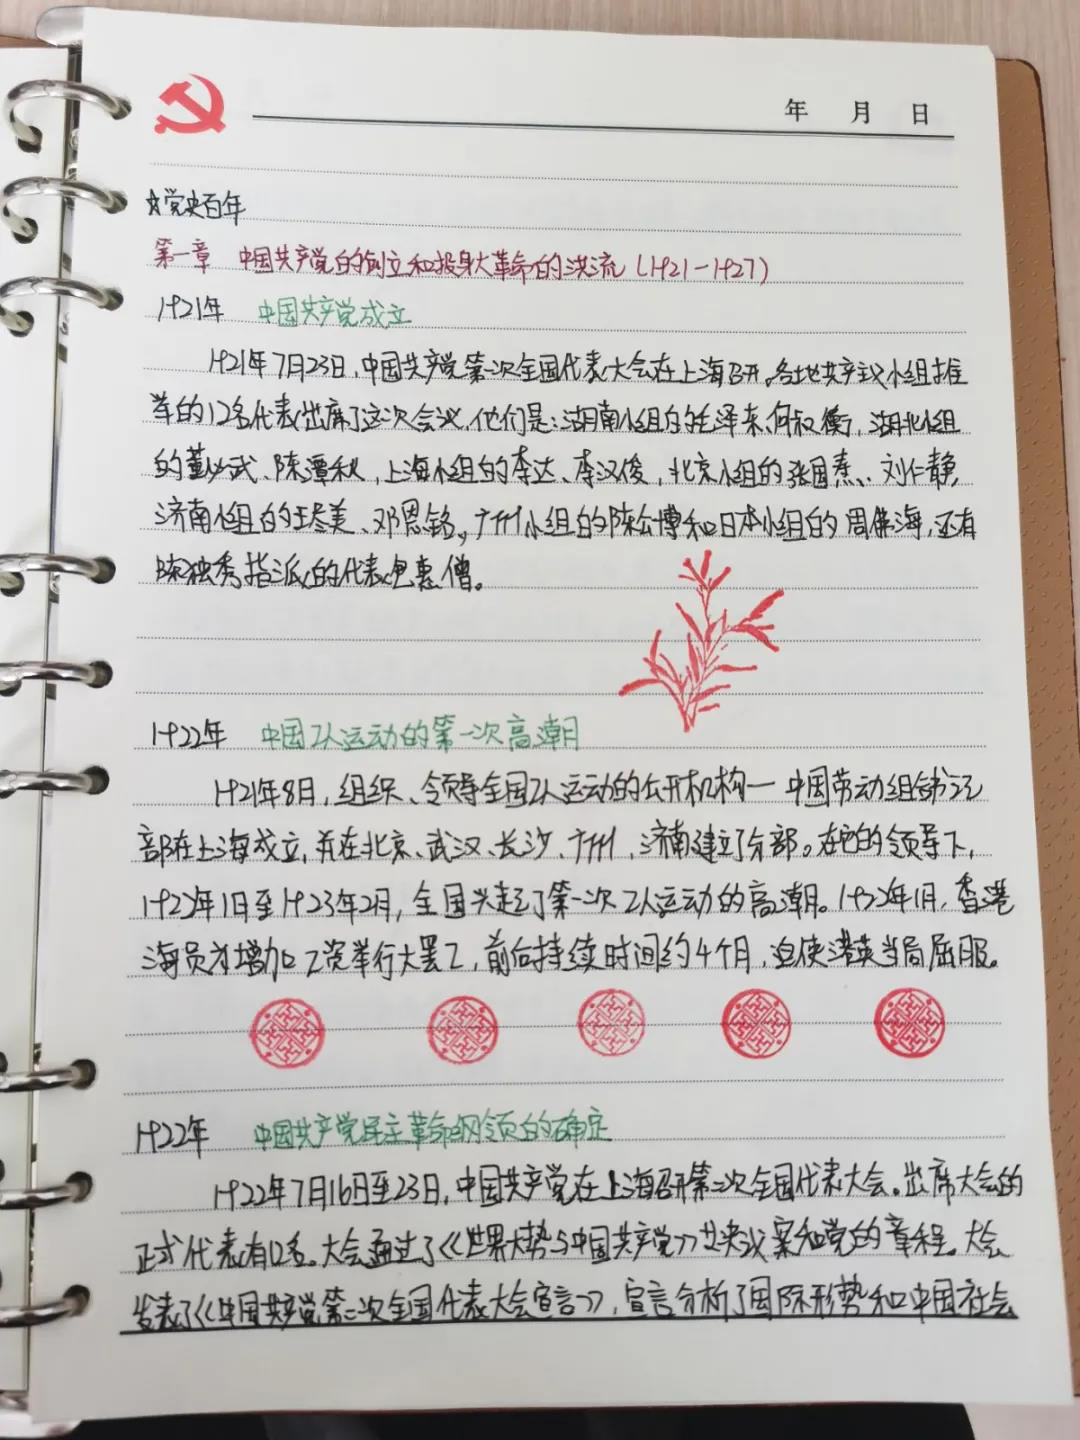 年 月 日
☆党史百年
第一章 中国共产党的创立和投身大革命的洪流(1921-1927)
1921年 中国共产党成立
1921年7月23日,中国共产党第一次全国代表大会在上海召开。各地共产主义小组推
举的12名代表出席了这次会议,他们是:湖南小组的毛泽东、何叔衡,湖北小组
的董必武、陈潭秋,上海小组的李达、李汉俊,北京小组的张国焘、刘仁静,
济南小组的王尽美、邓恩铭,广州小组的陈公博和日本小组的周佛海,还有
陈独秀指派的代表包惠僧。
1922年 中国工人运动的第一次高潮
1921年8月,组织、领导全国工人运动的公开机构—中国劳动组合书记
部在上海成立,并在北京、武汉、长沙、广州、济南建立了分部。在它的领导下,
1922年1月至1923年2月,全国兴起了第一次工人运动的高潮。1922年1月,香港
海员为增加工资举行大罢工,前后持续时间约4个月,迫使港英当局屈服。
1922年 中国共产党民主革命纲领的确定
1922年7月16日至23日,中国共产党在上海召开第二次全国代表大会。出席大会的
正式代表有12名。大会通过了《世界大势与中国共产党》等决议案和党的章程。大会
发表了《中国共产党第二次全国代表大会宣言》,宣言分析了国际形势和中国社会